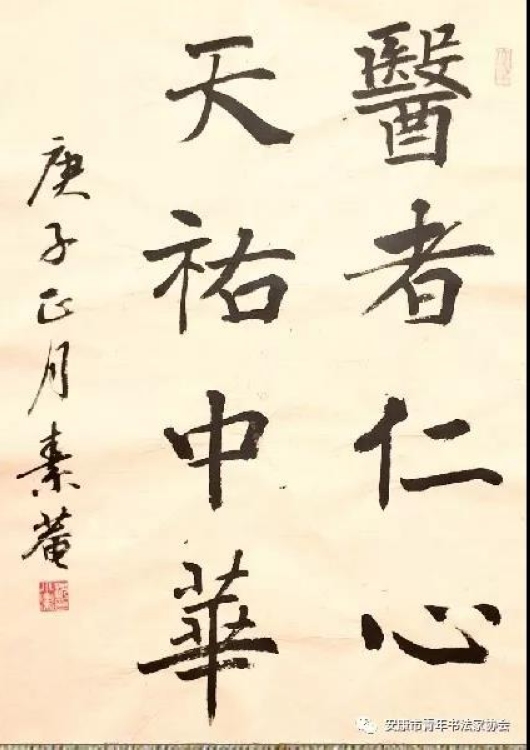 醫者仁心
天祐中華
庚子正月素菴
安康市青年书法家协会